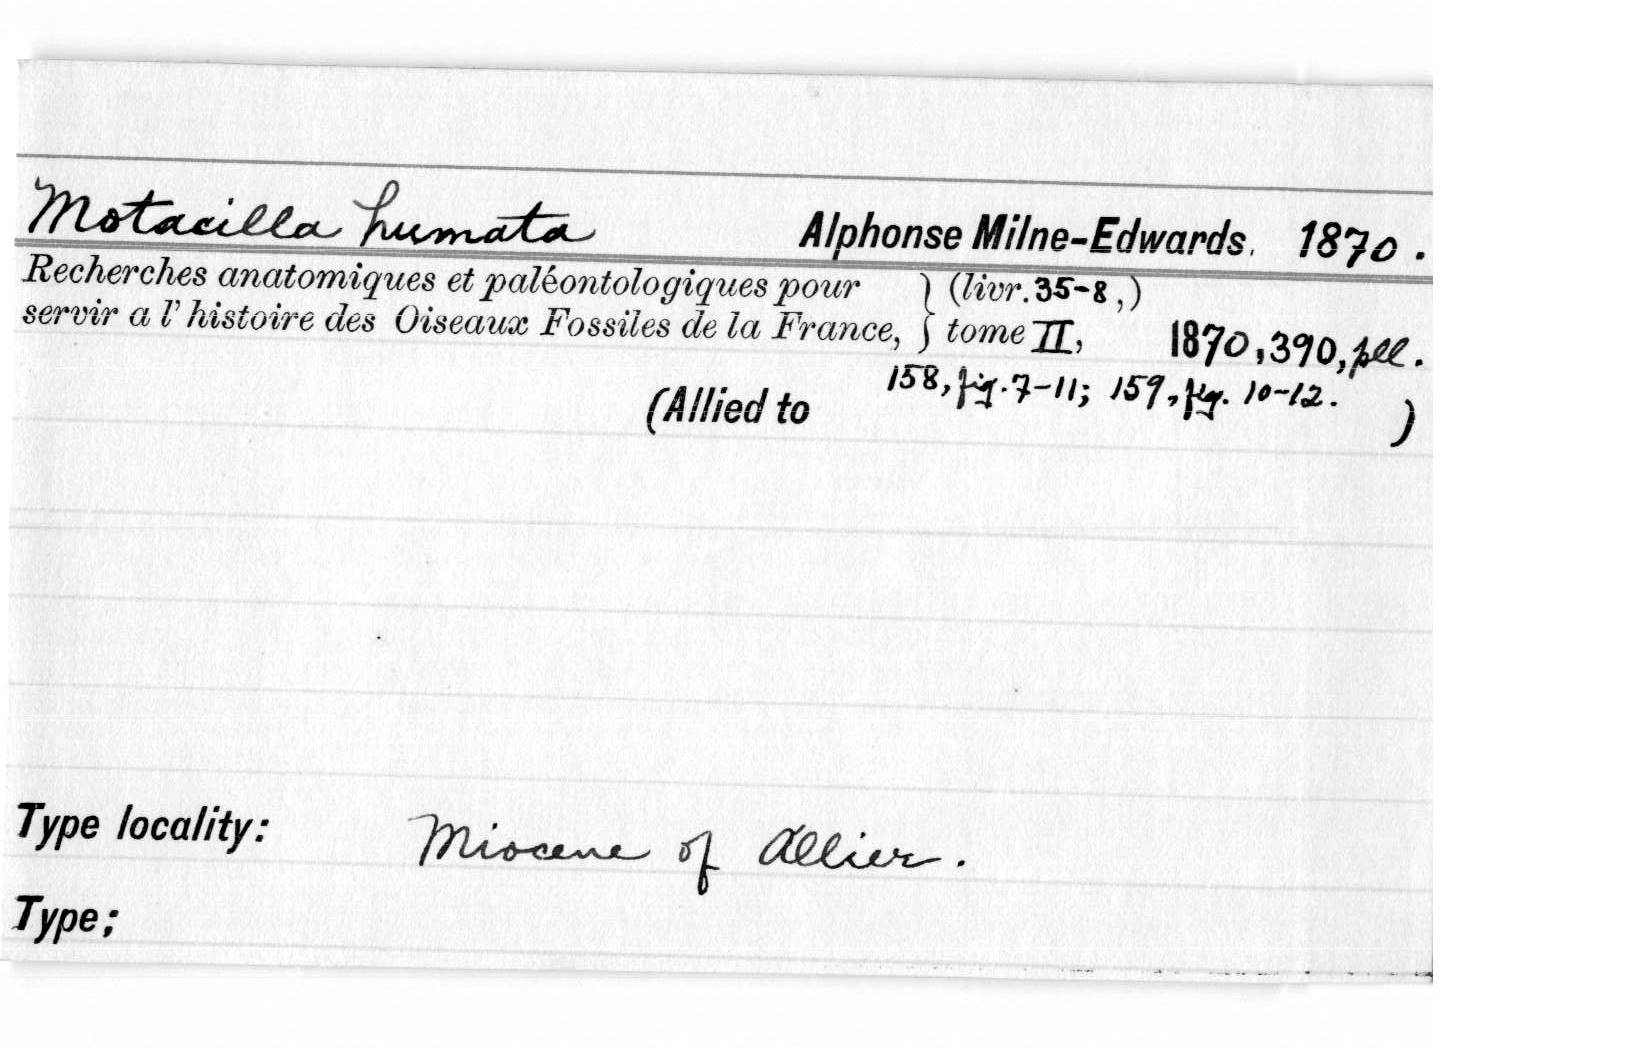 Motacilla humata Alphonse Milne-Edwards, 1870.
Recherches anatomiques et paléontologiques pour } (livr. 35-8,)
servir a l'histoire des Oiseaux Fossiles de la France, } tome II, 1870, 390, pll.
158, fig. 7-11; 159, fig. 10-12.
(Allied to )
Type locality: Miocene of Allier.
Type;